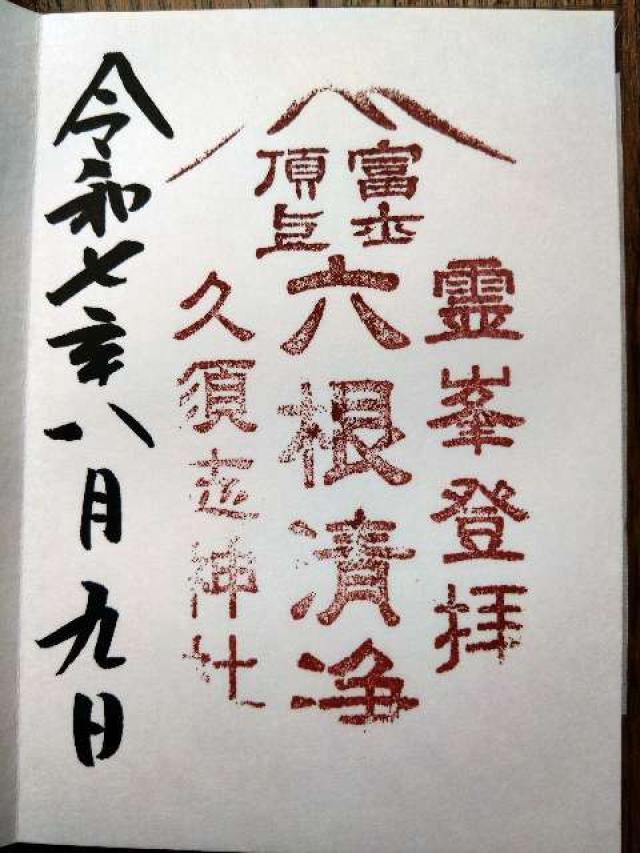 霊峯登拝
富士
頂上
六根清浄
久須志神社
令和七年八月九日